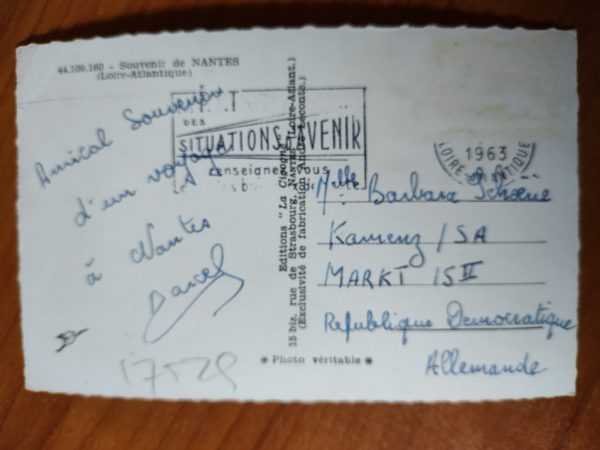 44.109.160 - Souvenir de NANTES
(Loire-Atlantique)
Amical Souvenir
d'un voyage
à Nantes
17529
DES
SITUATIONS D'AVENIR
renseignez vous
Editions "La Cigogne"
15 bis, rue de Strasbourg, NANTES (Loire-Atlant.)
(Exclusivité de fabrication André Leconte.)
* Photo véritable *
1963
LOIRE-ATLANTIQUE
Mlle Barbara
Kamenz / SA
MARKT 15 II
Republique Democratique
Allemande